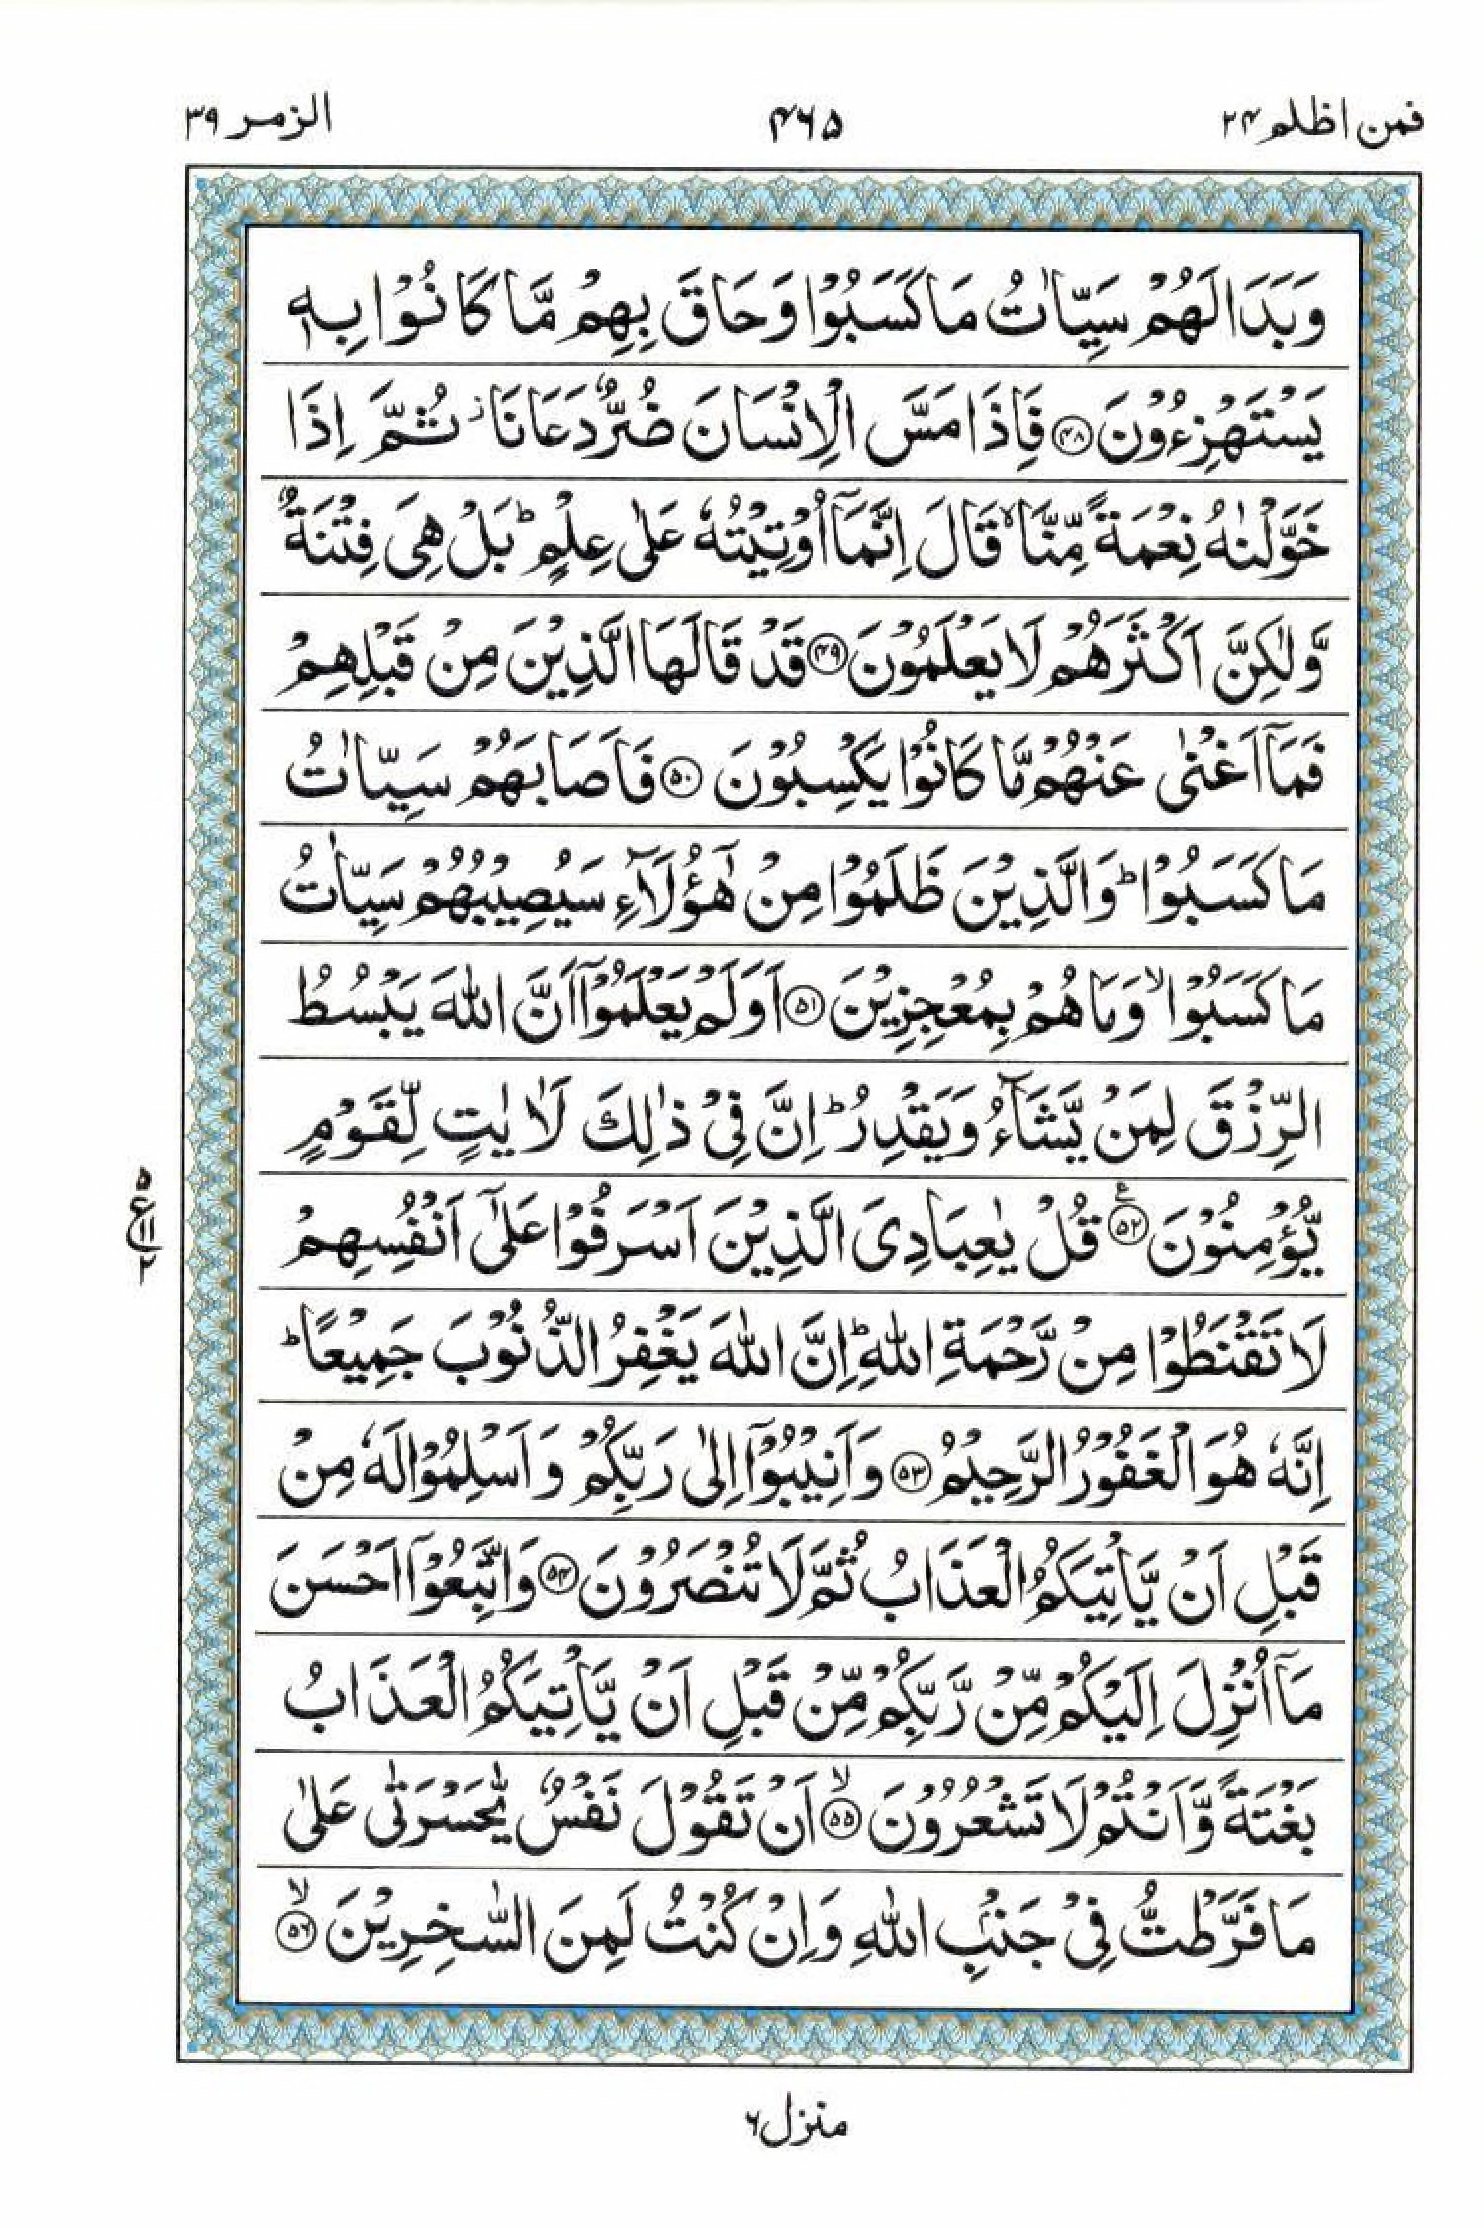 فمن اظلم ۲۴
۴۶۵
الزمر ۳۹
وَبَدَا لَهُمْ سَيِّاٰتُ مَا كَسَبُوْا وَحَاقَ بِهِمْ مَّا كَانُوْا بِهٖ
يَسْتَهْزِءُوْنَ ﴿۴۸﴾ فَاِذَا مَسَّ الْاِنْسَانَ ضُرٌّ دَعَانَا ز ثُمَّ اِذَا
خَوَّلْنٰهُ نِعْمَةً مِّنَّا ۙ قَالَ اِنَّمَآ اُوْتِيْتُهٗ عَلٰى عِلْمٍ ؕ بَلْ هِىَ فِتْنَةٌ
وَّلٰكِنَّ اَكْثَرَهُمْ لَا يَعْلَمُوْنَ ﴿۴۹﴾ قَدْ قَالَهَا الَّذِيْنَ مِنْ قَبْلِهِمْ
فَمَآ اَغْنٰى عَنْهُمْ مَّا كَانُوْا يَكْسِبُوْنَ ﴿۵۰﴾ فَاَصَابَهُمْ سَيِّاٰتُ
مَا كَسَبُوْا ؕ وَالَّذِيْنَ ظَلَمُوْا مِنْ هٰٓؤُلَآءِ سَيُصِيْبُهُمْ سَيِّاٰتُ
مَا كَسَبُوْا ۙ وَمَا هُمْ بِمُعْجِزِيْنَ ﴿۵۱﴾ اَوَلَمْ يَعْلَمُوْٓا اَنَّ اللّٰهَ يَبْسُطُ
الرِّزْقَ لِمَنْ يَّشَآءُ وَيَقْدِرُ ؕ اِنَّ فِىْ ذٰلِكَ لَاٰيٰتٍ لِّقَوْمٍ
يُّؤْمِنُوْنَ ﴿۵۲﴾ ع قُلْ يٰعِبَادِىَ الَّذِيْنَ اَسْرَفُوْا عَلٰٓى اَنْفُسِهِمْ
۵
ع ۱۱
۲
لَا تَقْنَطُوْا مِنْ رَّحْمَةِ اللّٰهِ ؕ اِنَّ اللّٰهَ يَغْفِرُ الذُّنُوْبَ جَمِيْعًا ؕ
اِنَّهٗ هُوَ الْغَفُوْرُ الرَّحِيْمُ ﴿۵۳﴾ وَاَنِيْبُوْٓا اِلٰى رَبِّكُمْ وَاَسْلِمُوْا لَهٗ مِنْ
قَبْلِ اَنْ يَّاْتِيَكُمُ الْعَذَابُ ثُمَّ لَا تُنْصَرُوْنَ ﴿۵۴﴾ وَاتَّبِعُوْٓا اَحْسَنَ
مَآ اُنْزِلَ اِلَيْكُمْ مِّنْ رَّبِّكُمْ مِّنْ قَبْلِ اَنْ يَّاْتِيَكُمُ الْعَذَابُ
بَغْتَةً وَّاَنْتُمْ لَا تَشْعُرُوْنَ ﴿۵۵﴾ ۙ اَنْ تَقُوْلَ نَفْسٌ يّٰحَسْرَتٰى عَلٰى
مَا فَرَّطْتُّ فِىْ جَنْۢبِ اللّٰهِ وَاِنْ كُنْتُ لَمِنَ السّٰخِرِيْنَ ﴿۵۶﴾ ۙ
منزل ۶